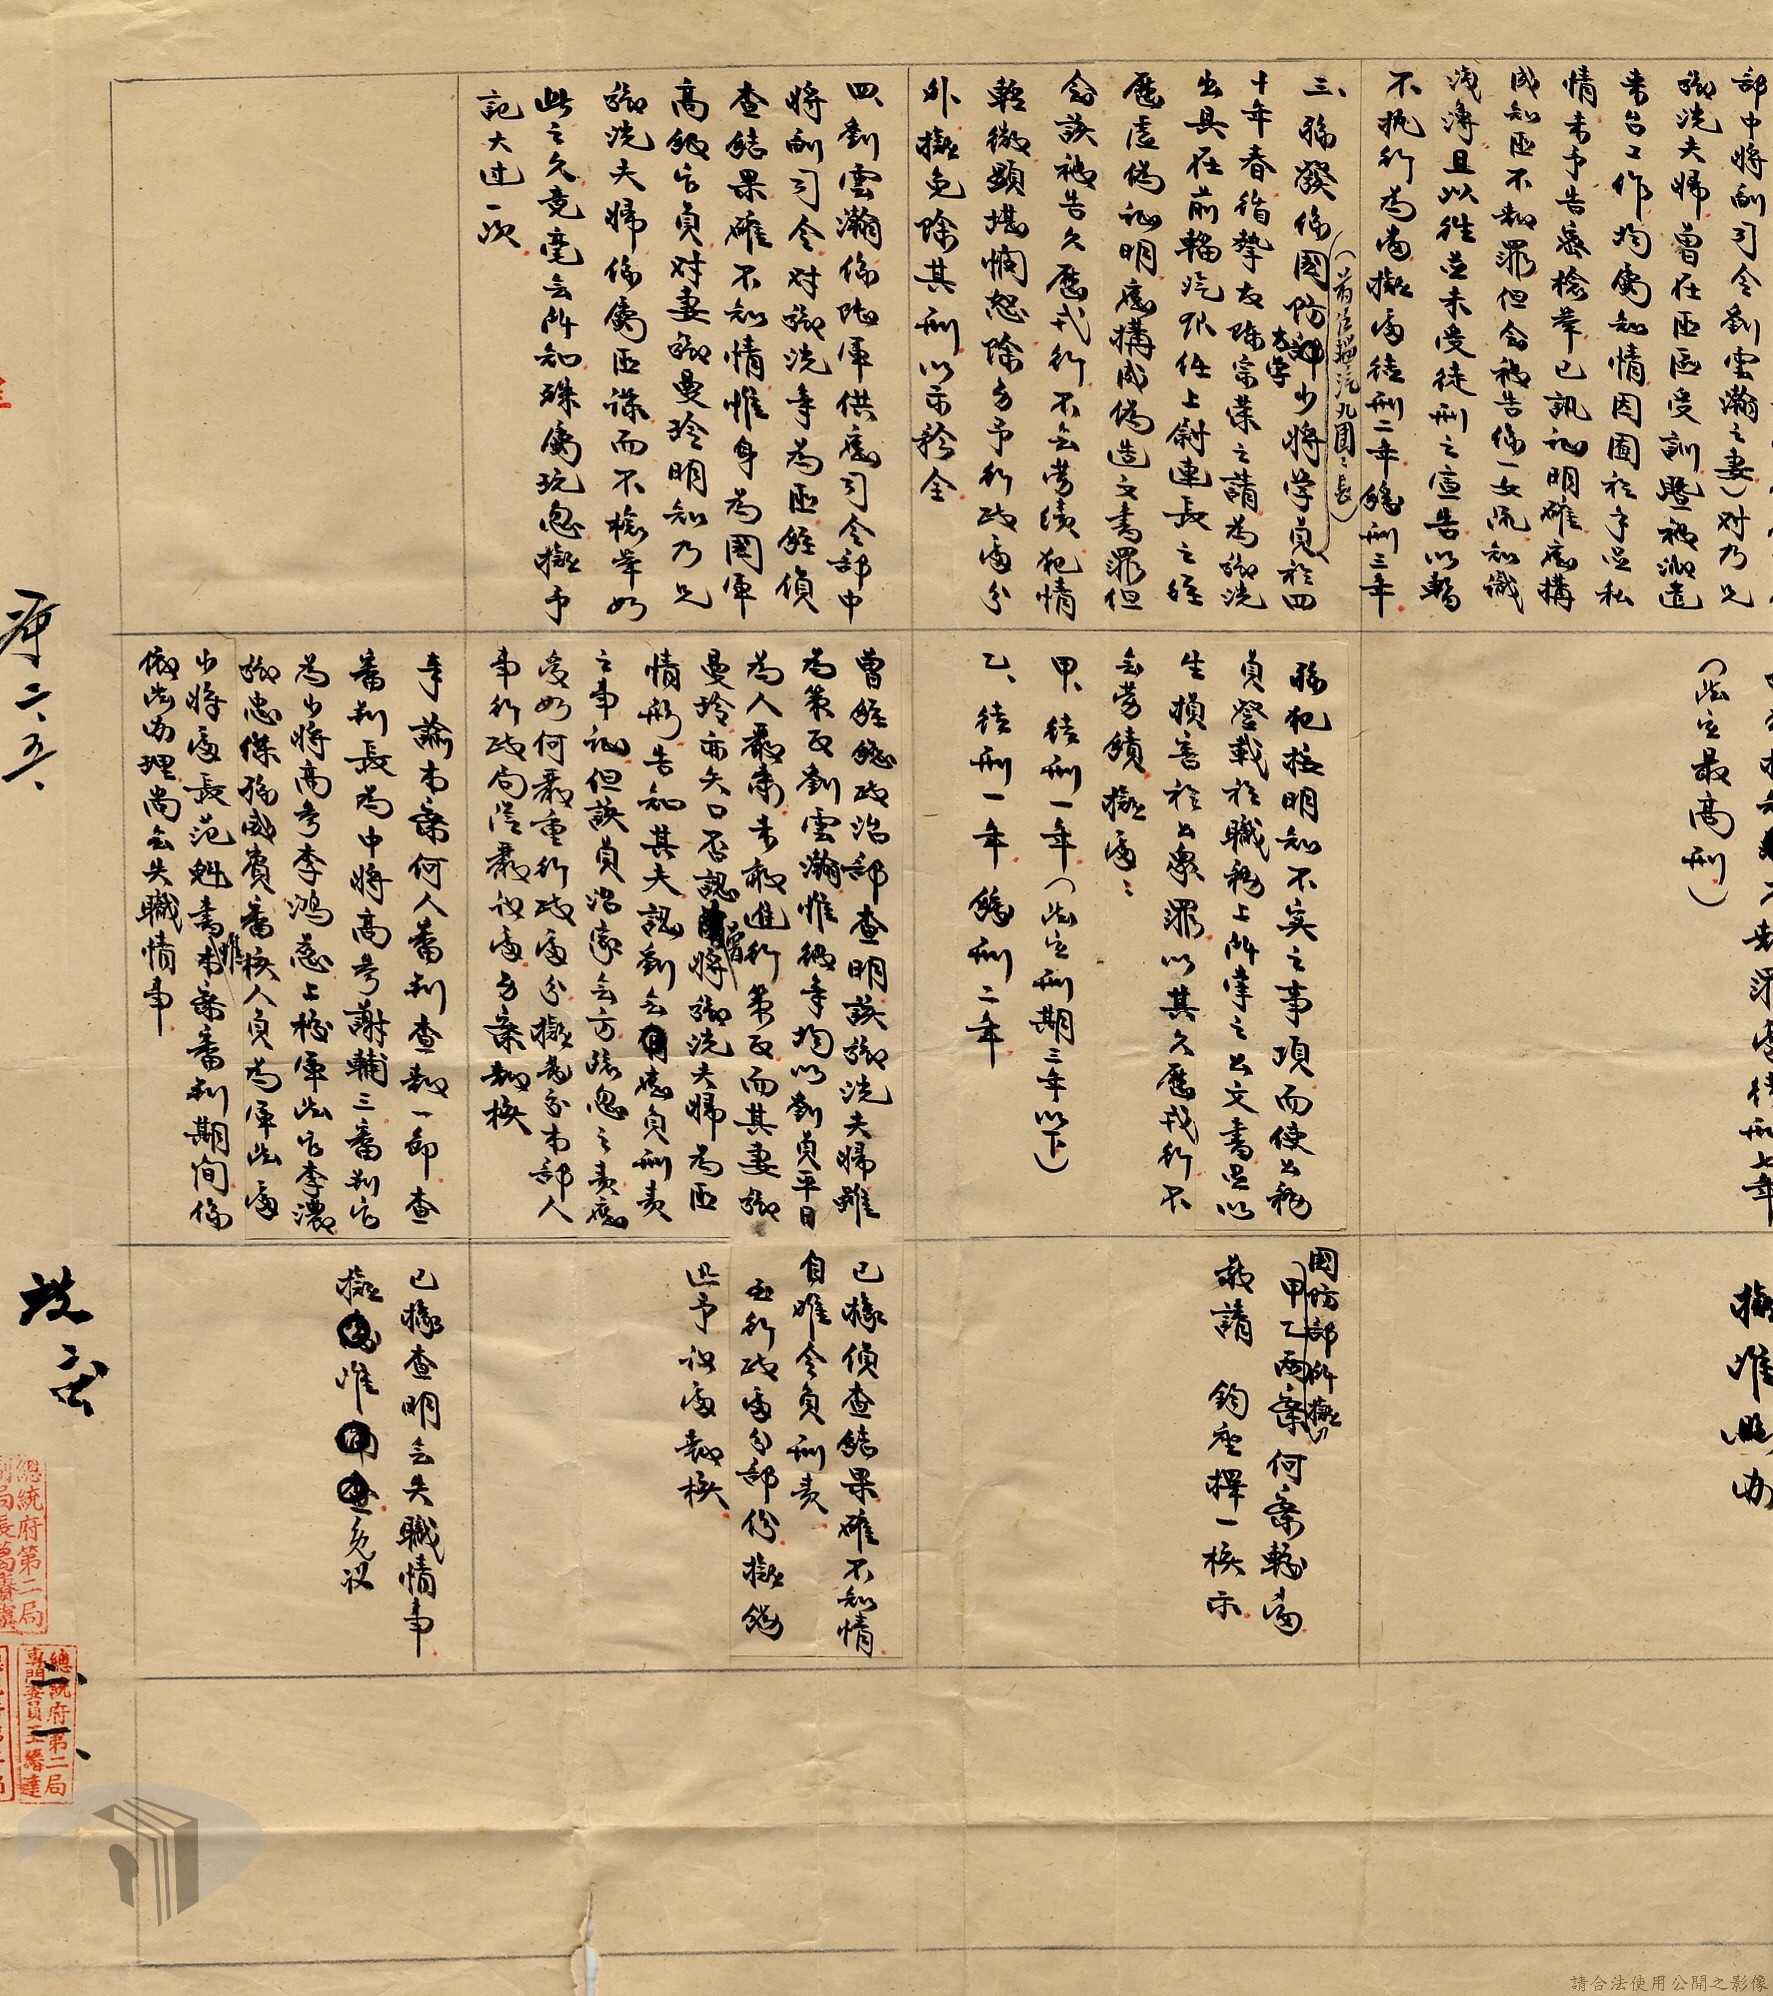 部中將副司令劉雲瀚之妻）对乃兄
鄒洗夫婦曾在匪區受訓暨被派遣
來台工作均屬知情因囿於手足私
情未予告密檢举已訊证明確應構
成知匪不報罪但念被告係一女流知識
淺薄且以往並未受徒刑之宣告以暫
不执行為當擬處徒刑二年緩刑三年
（此宣最高刑）
擬准照办
三、
係國防部
大学
少將学員於四
（前任輜汽九團團長）
十年春循摯友
宗荣之請為鄒洗
出具在前輜汽
任上尉連長之經
歷虛偽证明應構成偽造文書罪但
念該被告久歷戎行不無勞績犯情
輕微顯堪憫恕除另予行政處分
外擬免除其刑以示矜全
犯按明知不实之事項而使公務
員登載於職務上所掌之公文書足以
生損害於公眾罪以其久歷戎行不
無勞績擬處：
甲、徒刑一年（此宣刑期三年以下）
乙、徒刑一年緩刑二年
國防部所擬
甲乙兩案何案較當
敬請 鈞座擇一核示
四、劉雲瀚係陸軍供應司令部中
將副司令对鄒洗等為匪經偵
查結果確不知情惟身為國軍
高級官員对妻鄒曼玲明知乃兄
鄒洗夫婦係屬匪諜而不檢举如
此之久竟毫無所知殊屬玩忽擬予
記大过一次
曹經總政治部查明該鄒洗夫婦雖
為策反劉雲瀚惟彼等均以劉員平日
為人嚴肅未敢進行策反而其妻鄒
曼玲亦矢口否認曾將鄒洗夫婦為匪
情形告知其夫認劉無應負刑責
之事证但該員治家無方疏忽之責應
受如何嚴重行政處分擬飭本部人
事行政局從嚴议處另案報核
已據偵查結果確不知情
自难令負刑責
至行政處分部份擬飭
迅予议處報核
奉諭本案何人審判查報一節查
審判長為中將高參謝輔三審判官
為少將高參李鴻慈上校軍法官李濃
鄒忠傑
威賓審核人員為軍法處
少將處長范魁書惟本案審判期间係
依法办理尚無失職情事
已據查明無失職情事
擬准免议
二、五、
總統府第二局
副局長
總統府第二局
專門委員王
達
二、一、
請合法使用公開之影像